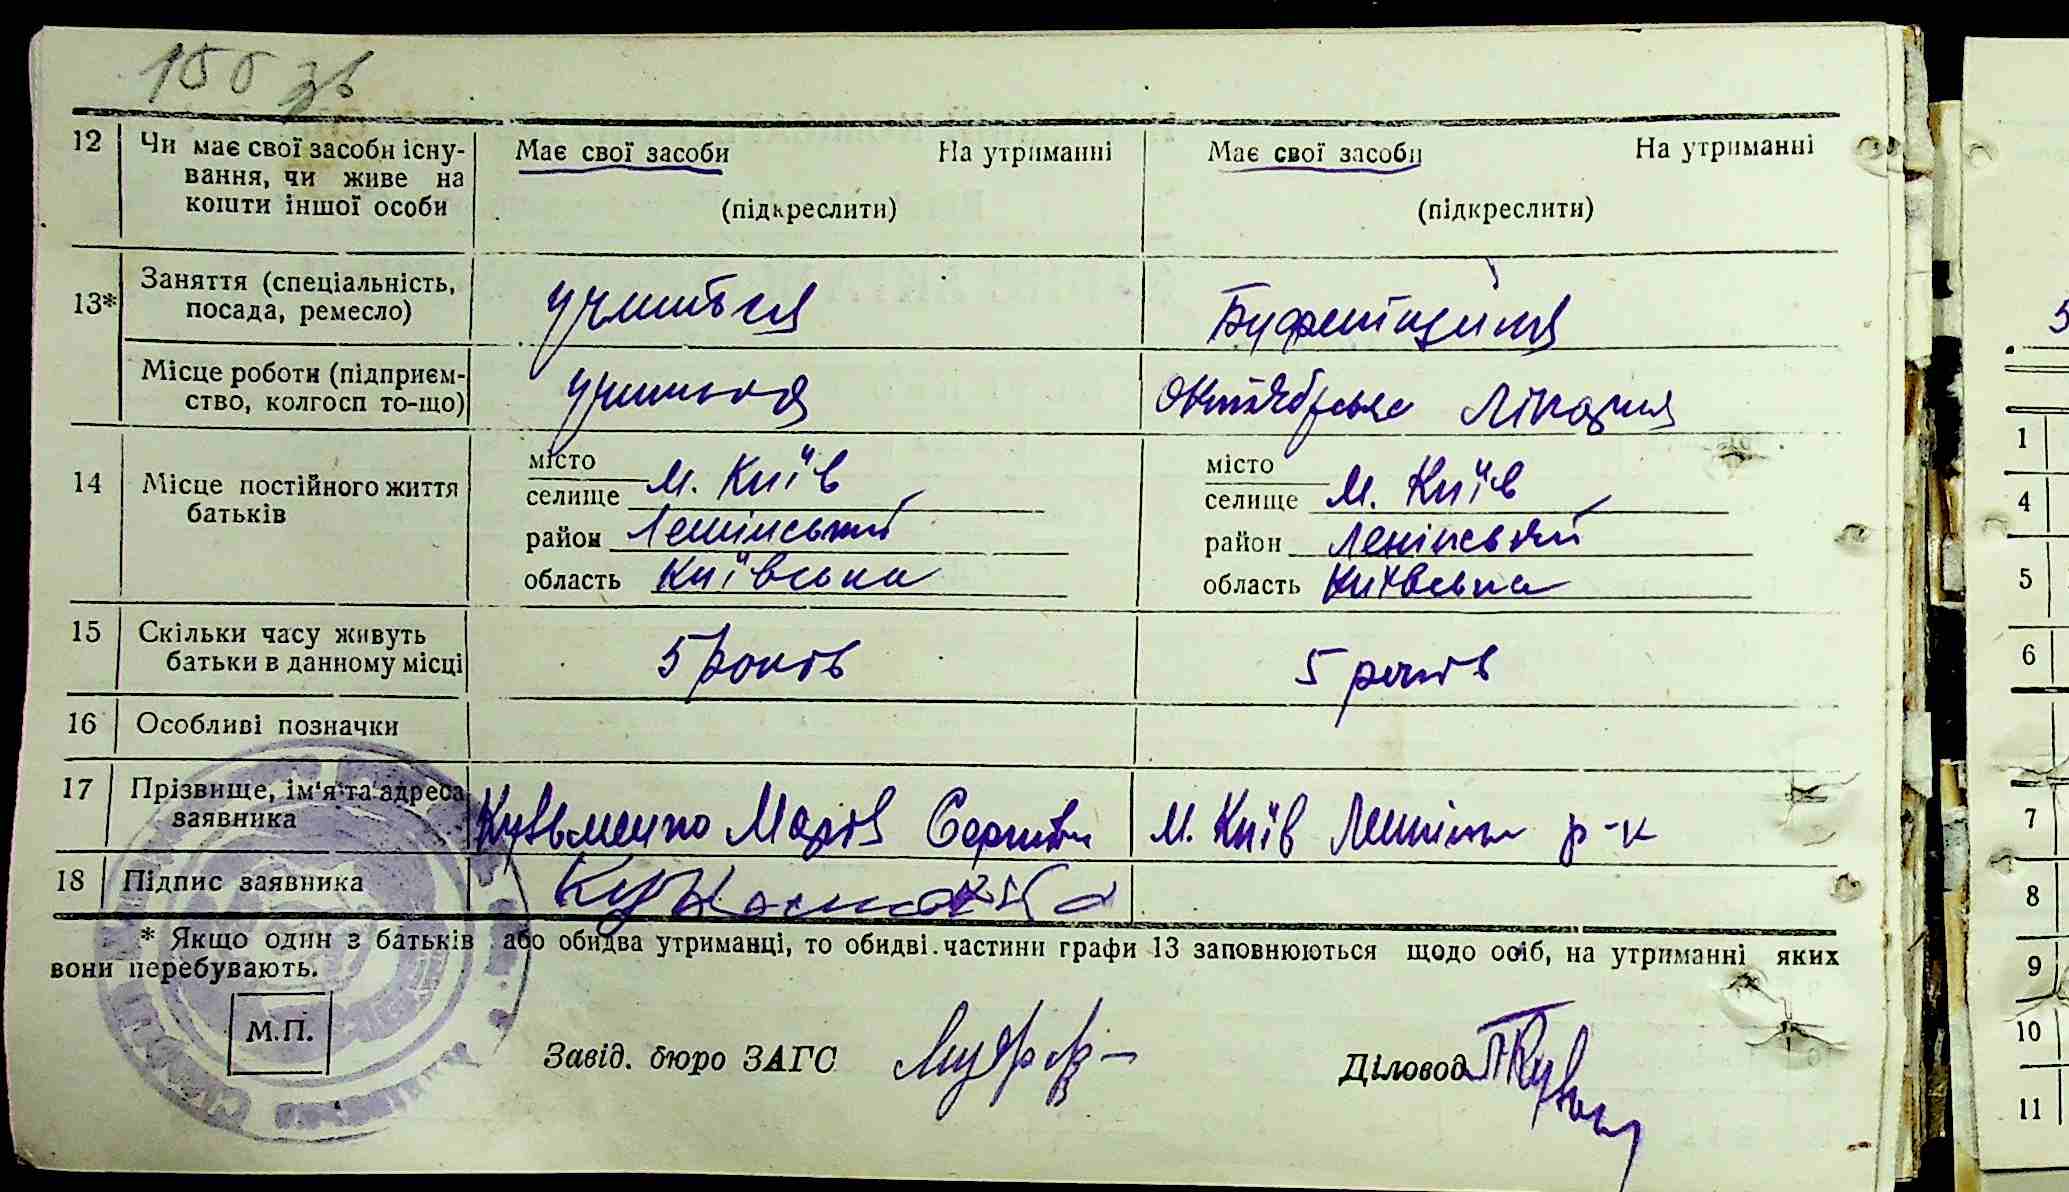 156 зв
12 Чи має свої засоби існу- Має свої засоби На утриманні Має свої засоби На утриманні
вання, чи живе на
кошти іншої особи (підкреслити) (підкреслити)
13* Заняття (спеціальність, учиться Буфетниця
посада, ремесло)
Місце роботи (підприєм- Октябрська Лікарня
ство, колгосп то-що)
14 Місце постійного життя місто м. Київ місто м. Київ
батьків селище селище
район Ленінський район Ленінський
область Київська область Київська
15 Скільки часу живуть 5 років 5 років
батьки в данному місці
16 Особливі позначки
17 Прізвище, ім'я та адреса Кузьменко Марія м. Київ р-н
заявника
18 Підпис заявника
* Якщо один з батьків або обидва утриманці, то обидві частини графи 13 заповнюються щодо осіб, на утриманні яких
вони перебувають.
М.П.
Завід. бюро ЗАГС Діловод
5
1
4
5
6
7
8
9
10
11